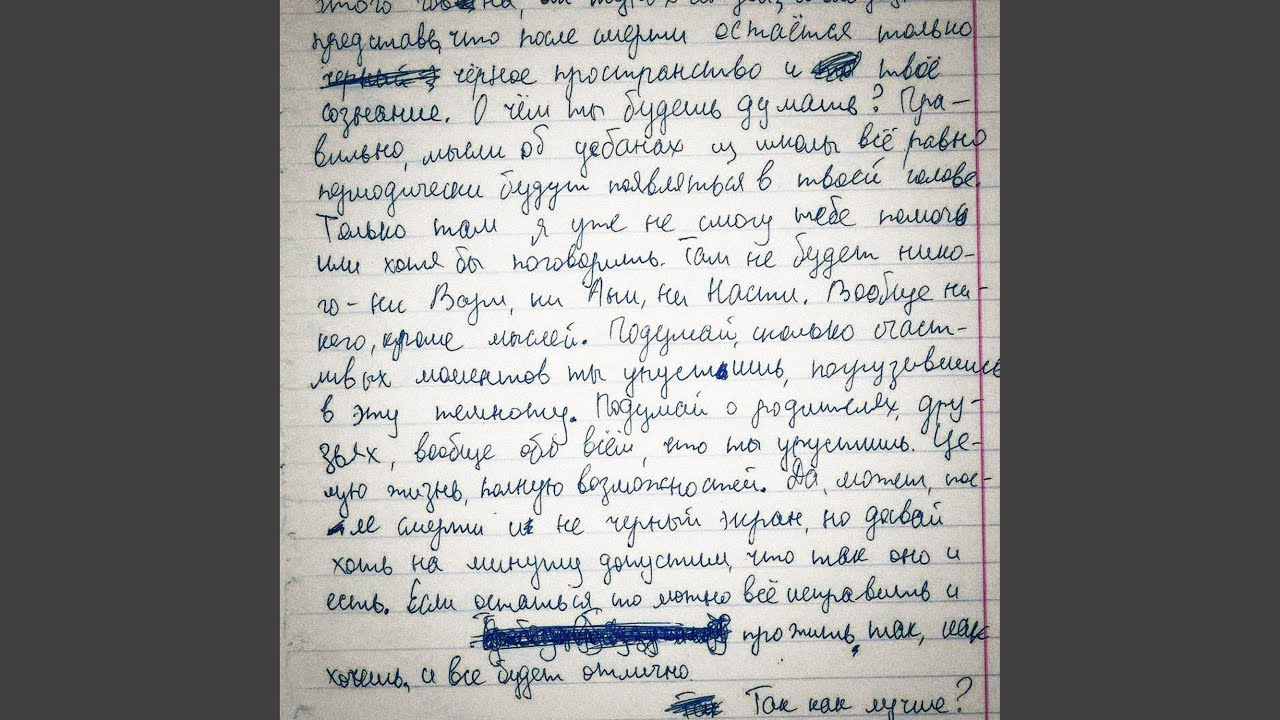 этого
представь, что после смерти остаётся только
чёрное пространство и твоё
сознание. О чём ты будешь думать? Пра-
вильно, мысли об дебанах из школы всё равно
периодически будут появляться в твоей голове.
Только там я уже не смогу тебе помочь
или хотя бы поговорить. Там не будет нико-
го - ни Вали, ни Ани, ни Насти. Вообще ни-
кого, кроме мыслей. Подумай, сколько счаст-
ливых моментов ты упустишь, погрузившись
в эту темноту. Подумай о родителях, дру-
зьях, вообще обо всём, что ты упустишь. Це-
лую жизнь, полную возможностей. Да, может, пос-
ле смерти и не черный экран, но давай
хоть на минуту допустим, что так оно и
есть. Если остаться, то можно всё исправить и
прожить так, как
хочешь, и все будет отлично.
Так как лучше?